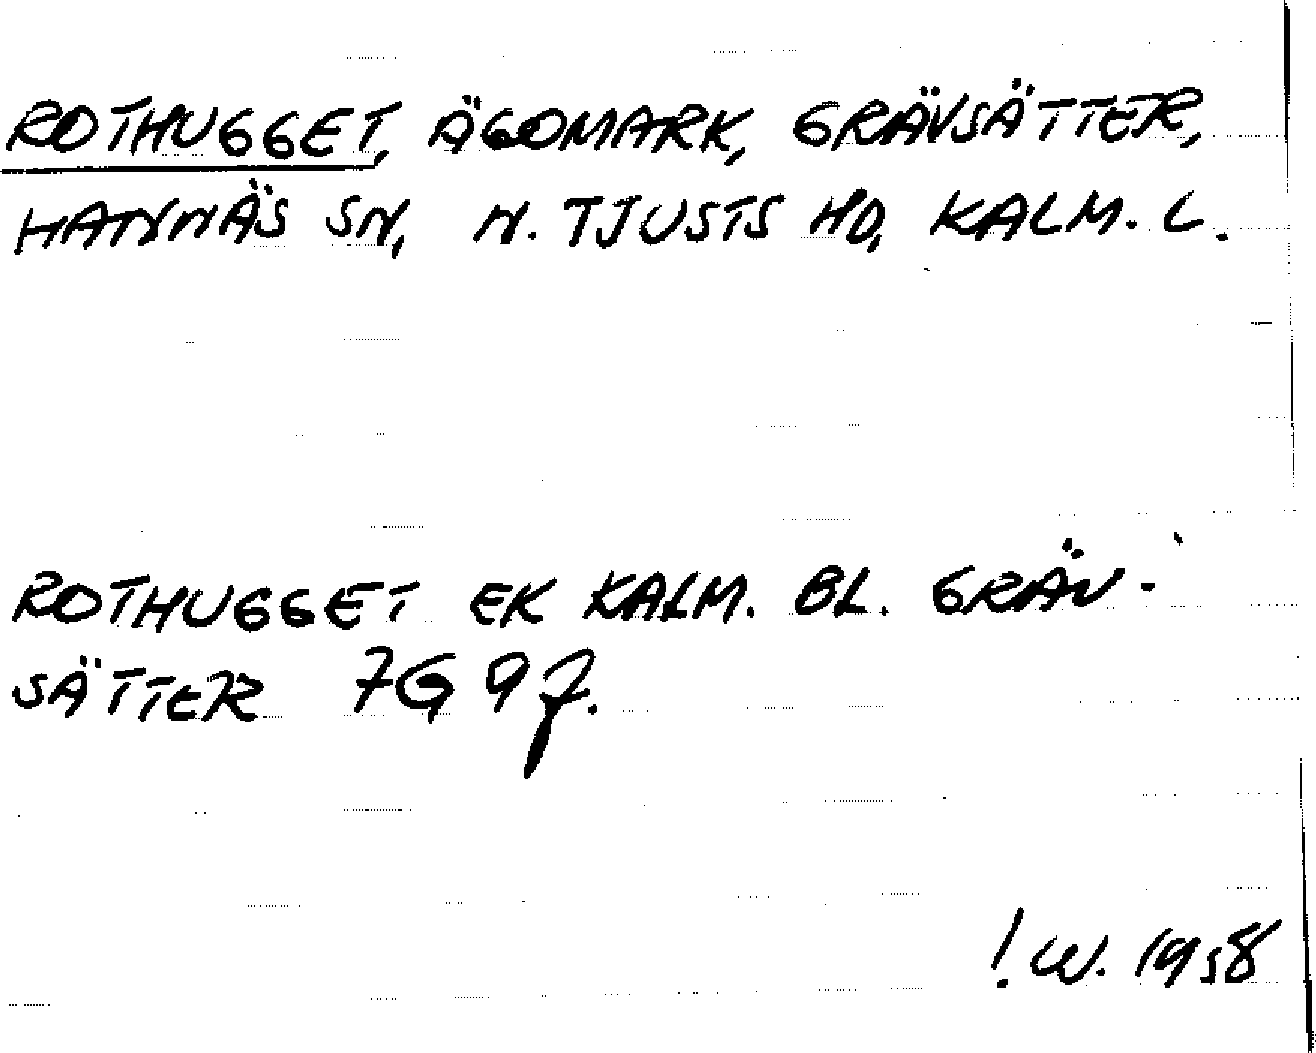 ROTHUGGET, ÄGOMARK, GRÄVSÄTTER,
HANNÄS SN, N. TJUSTS HD, KALM. L.
ROTHUGGET EK KALM. BL. GRÄV-
SÄTTER 7G 9f.
! W. 1958